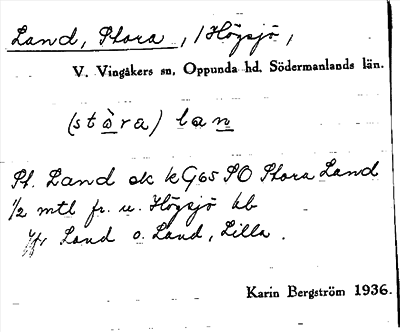 Land, Stora, /Högsjö,
V. Vingåkers sn, Oppunda hd, Södermanlands län.
(stòra) lan
Pl. Land ek kG65 SO Stora Land
1/2 mtl fr. u. Högsjö hb
Jfr Land o. Land, Lilla.
Karin Bergström 1936.